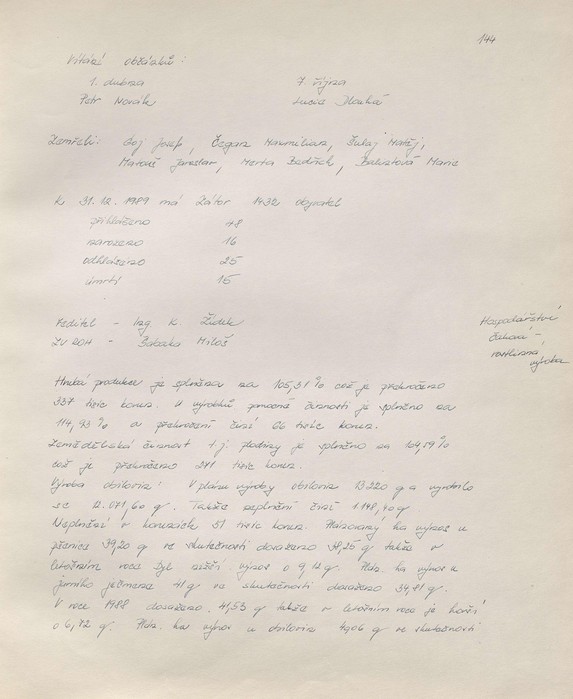 144
Vítání občánků:
1. dubna 7. října
Petr Novák Lucie Dlouhá
Zemřeli: Goj Josef, Czegan Maxmilian, Šulaj Matěj,
Matouš Jaroslav, Merta Bedřich, Balnetová Marie
K 31.12.1989 má Zátor 1432 obyvatel
přihlášeno 48
narozeno 16
odhlášeno 25
úmrtí 15
Ředitel - Ing K. Žídek
ZV ROH - Sobotka Miloš
Hospodářství
Čaková -
rostlinná
výroba
Hrubá produkce je splněna na 105,31 % což je překročeno
337 tisíc korun. U výrobků pomocné činnosti je splněno na
114,93 % a překročení činí 66 tisíc korun.
Zemědělská činnost t.j. plodiny je splněno na 104,59 %
což je překročeno 271 tisíc korun.
Výroba obilovin: V plánu výroby obilovin 13 220 q a vyrobilo
se 12.071,60 q. Takže neplnění činí 1.148,40 q.
Neplnění v korunách 51 tisíc korun. Plánovaný ha výnos u
pšenice 39,20 q ve skutečnosti dosaženo 38,25 q takže v
letošním roce byl nižší výnos o 9,12 q. Plán. ha výnos u
jarního ječmene 41 q ve skutečnosti dosaženo 34,81 q.
V roce 1988 dosaženo 41,53 q takže v letošním roce je horší
o 6,72 q. Plán. ha výnos u obilovin q ve skutečnosti